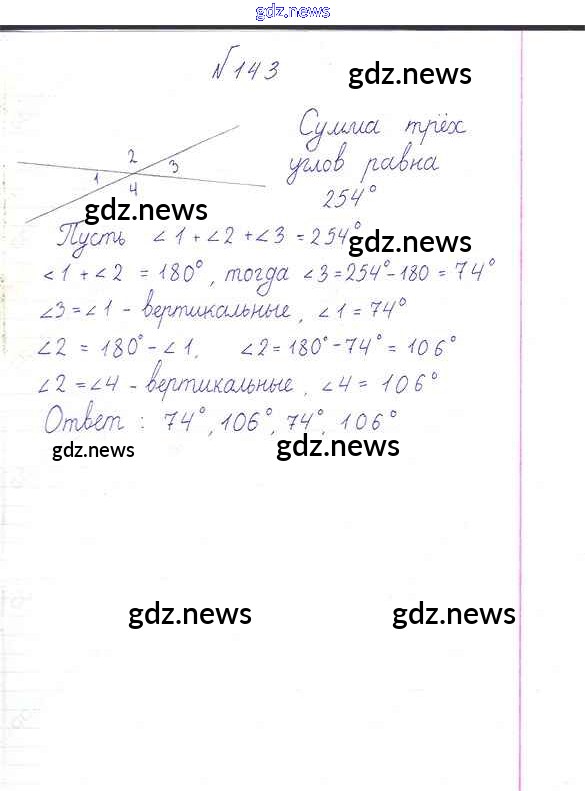 gdz.news
№143
gdz.news
Сумма трёх
углов равна
254°
2
1
3
4
gdz.news
Пусть ∠1+∠2+∠3=254°
gdz.news
∠1+∠2 = 180°, тогда ∠3=254°-180=74°
∠3=∠1 - вертикальные, ∠1=74°
∠2 = 180°-∠1. ∠2=180°-74°=106°
∠2=∠4 - вертикальные, ∠4= 106°
Ответ: 74°, 106°, 74°, 106°
gdz.news
gdz.news
gdz.news
gdz.news